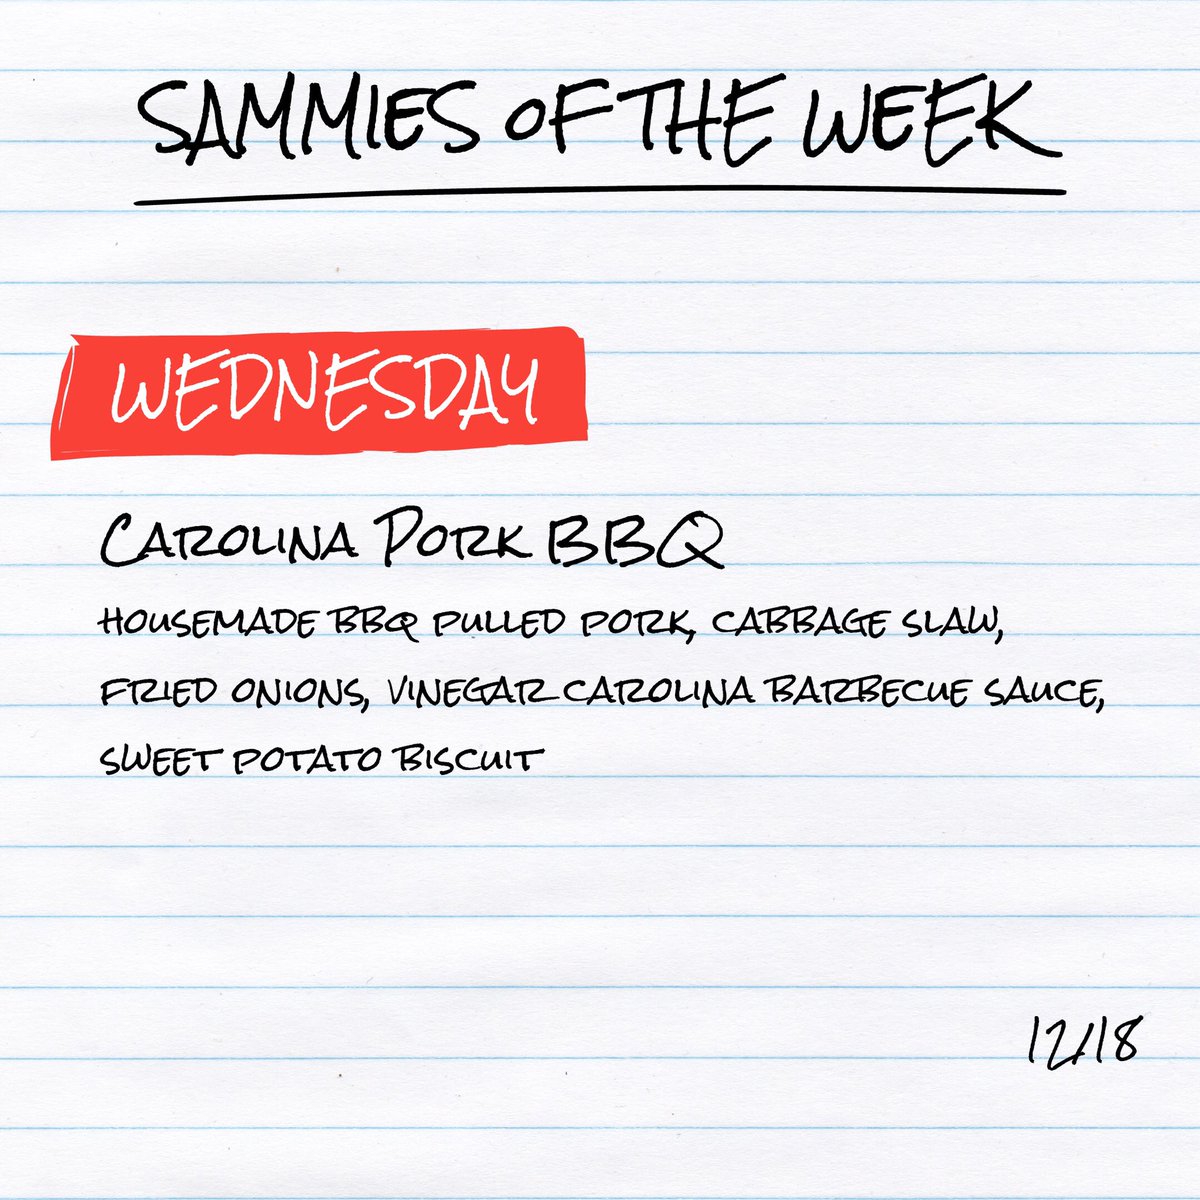 SAMMIES OF THE WEEK
WEDNESDAY
CAROLINA PORK BBQ
HOUSEMADE BBQ PULLED PORK, CABBAGE SLAW,
FRIED ONIONS, VINEGAR CAROLINA BARBECUE SAUCE,
SWEET POTATO BISCUIT
12/18